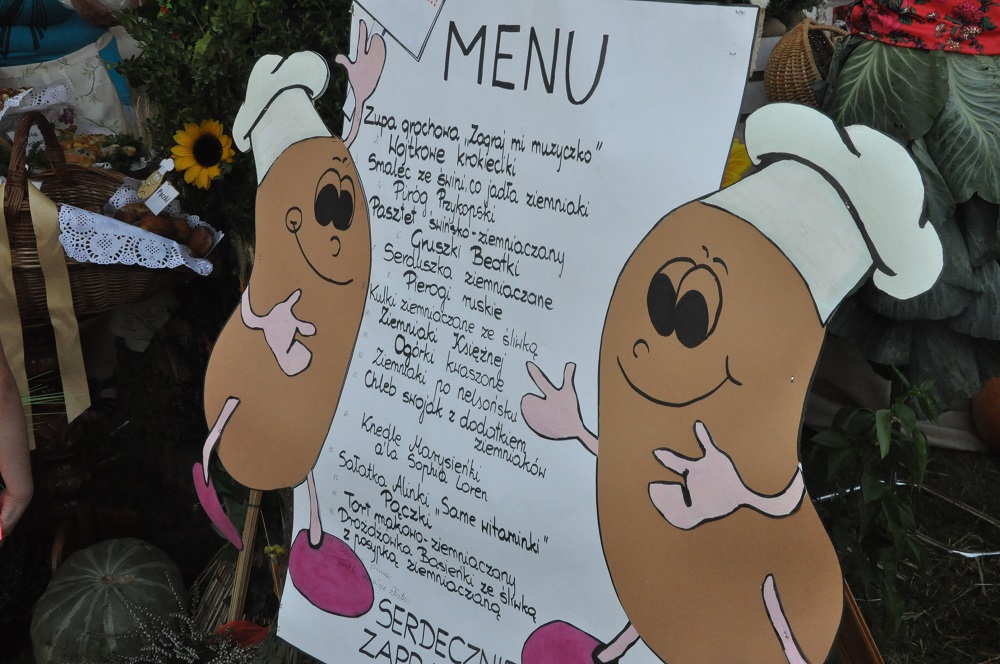 MENU
Zupa grochowa „Zagraj mi muzyczko"
Wójtkowe krokieciki
Smalec ze świni, co jadła ziemniaki
Piróg Przykopski
Pasztet świńsko-ziemniaczany
Gruszki Beatki
Serduszka ziemniaczane
Pierogi ruskie
Kulki ziemniaczane ze śliwką
Ziemniaki Księżnej
Ogórki kwaszone
Ziemniaki po nelsońsku
Chleb swojak z dodatkiem
ziemniaków
Knedle Marysieńki
a'la Sophia Loren
Sałatka Alinki „Same witaminki"
Pączki
Tort makowo-ziemniaczany
Drożdżówka Basieńki ze śliwką
z posypką ziemniaczaną
SERDECZNIE